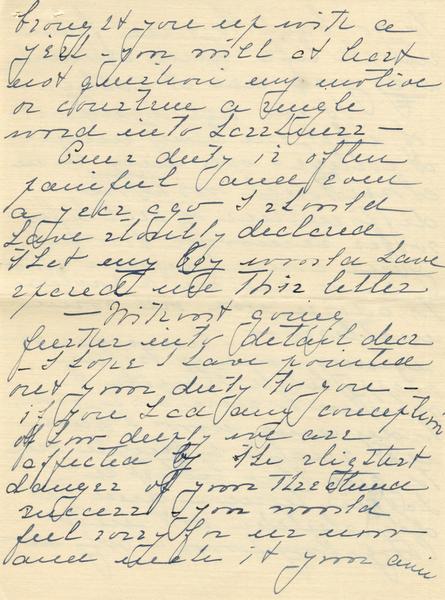 brought you up with a
yell - you will at least
not question my motive
or construe a single
word into harshness —
Our duty is often
painful and even
a year ago I should
have stoutly declared
that my boy would have
spared me this letter
— Without going
further into detail dear
- I hope I have pointed
out your duty to you -
if you had any conception
of how deeply we are
affected by the slightest
danger of your threatened
success you would
feel sorry for us now
and make it your aim